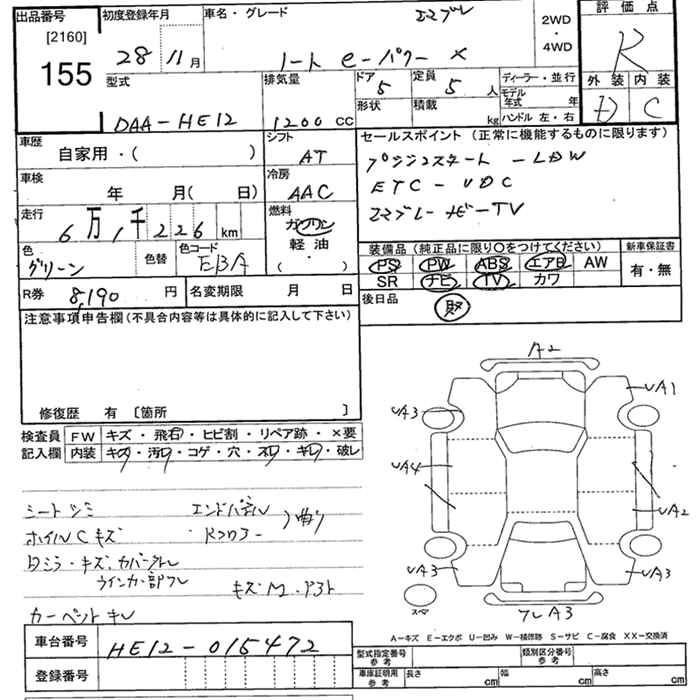 出品番号 初度登録年月 車名・グレード エマブレ 2WD・4WD 評価点
[2160]
155 28年 11月 ノート e-パワー X R
型式 排気量 ドア 5 定員 5人 ディーラー・並行 外装 内装
DAA-HE12 1200cc 形状 積載 kg モデル年式 年 ハンドル 左・右 D C
車歴 シフト セールスポイント (正常に機能するものに限ります)
自家用・( ) AT プッシュスタート -LDW
車検 冷房 ETC - VDC
年 月( 日) AAC エマブレ-ナビ-TV
走行 燃料
6万,1千226km ガソリン 軽油 ( ・ )
色 色替 色コード 装備品 (純正品に限り○をつけてください) 新車保証書
グリーン EBA PS PW ABS エアB AW 有・無
SR ナビ TV カワ
R券 8,190円 名変期限 月 日 後日品 取
注意事項申告欄(不具合内容等は具体的に記入して下さい)
修復歴 有 [箇所 ]
検査員 FW キズ・飛石・ヒビ割・リペア跡・×要
記入欄 内装 キズ・汚れ・コゲ・穴・スレ・キレ・破レ
A2
UA1
UA3
UA4
UA2
UA3
UA3
スペア
フレA3
シートシミ エンドパネル
ホイルCキズ Rフロアー )曲り
Dミラ・キズ,カバーワレ
ウインカー部ワレ キズM.アスト
カーペットキレ
A-キズ E-エクボ U-凹み W-補修跡 S-サビ C-腐食 XX-交換済
車台番号 HE12-015472 型式指定番号 参考 類別区分番号 参考
登録番号 車庫証明用 参考 長さ cm 幅 cm 高さ cm